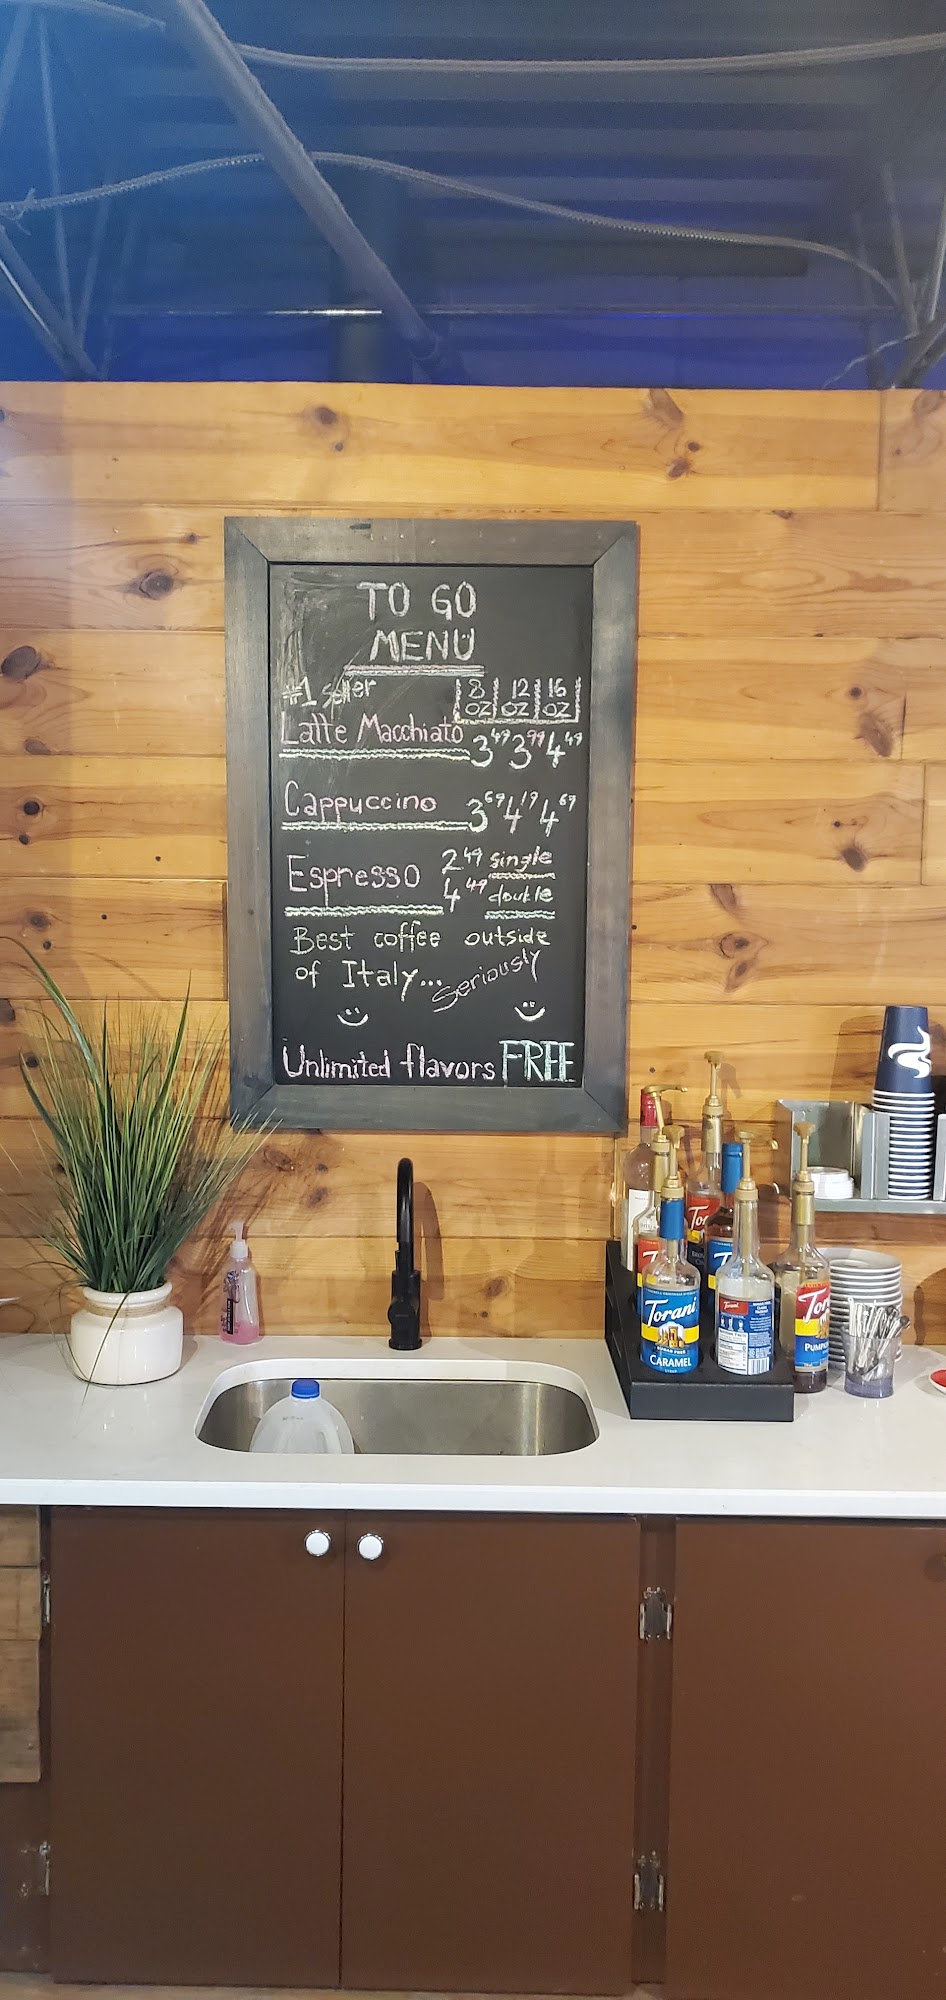 TO GO
MENU
#1 Seller
8 OZ 12 OZ 16 OZ
Latte Macchiato 3 49 3 99 4 49
Cappuccino 3 69 4 19 4 69
Espresso 2 49 single
4 49 double
Best coffee outside
of Italy... Seriously
Unlimited flavors FREE
Torani
SUGAR FREE
CARAMEL
Torani